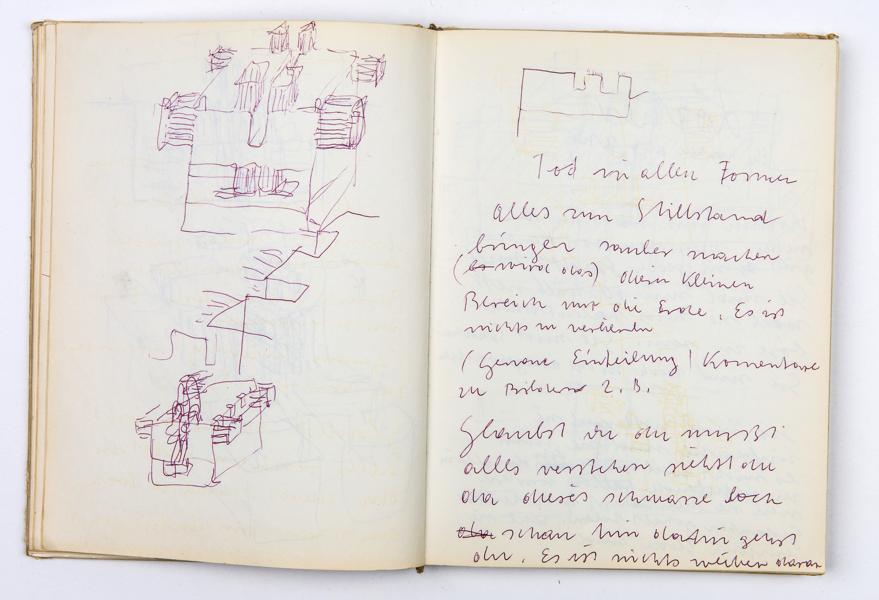 Tod in allen Formen
alles zum Stillstand
bringen sauber machen
(es wird das) diesen kleinen
Bereich nur die Erde. Es ist
nichts zu verlieren
(Genaue Einteilung) Komentare
zu Bildern z. B.
Glaubst du du mußt
alles verstehen siehst du
da dieses schwarze Loch
schau hin dahin gehst
du. Es ist nichts weiter daran